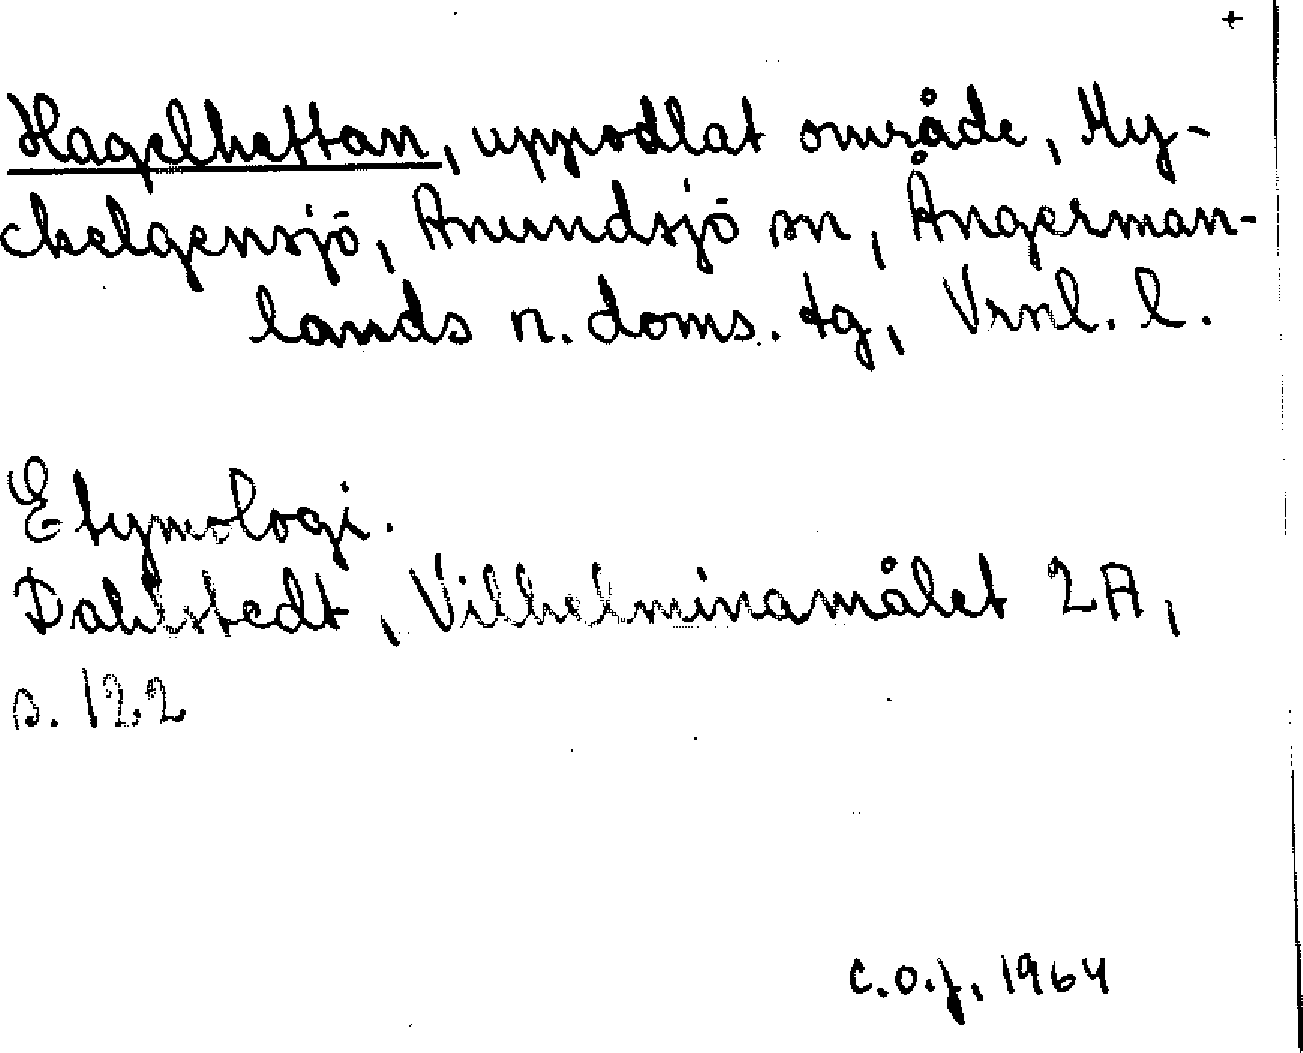 +
Hagelhettan, uppodlat område, My-
ckelgensjö, Anundsjö sn, Ångerman-
lands n. doms. tg, Vrnl. l.
Etymologi.
Dahlstedt, Vilhelminamålet 2A,
s. 122
C.O.J., 1964